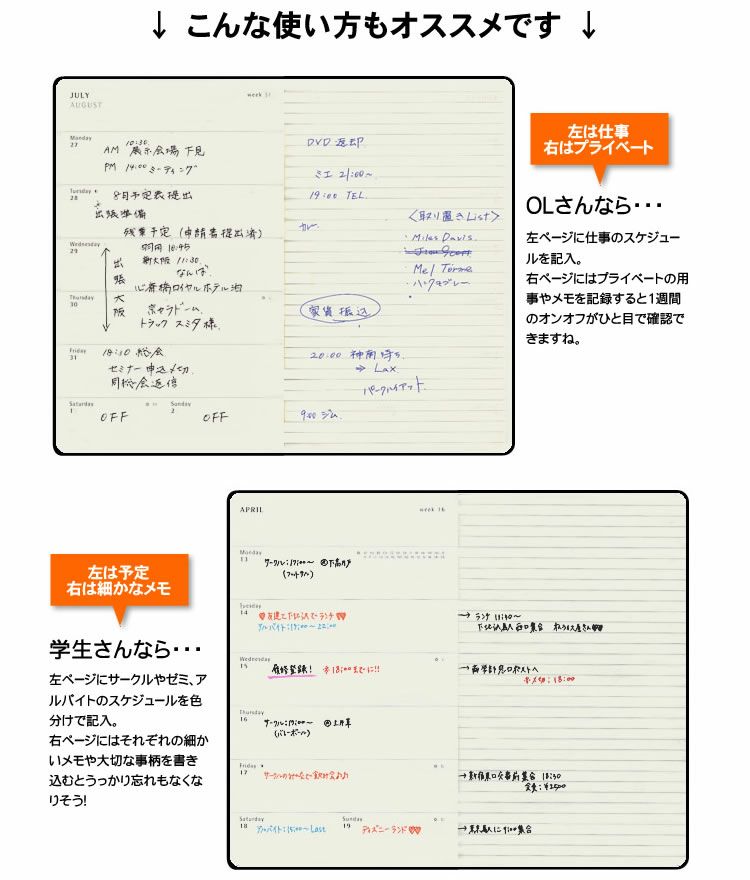 ↓ こんな使い方もオススメです ↓
JULY
AUGUST
week 31
Monday
27
10:30
AM 展示会場 下見
PM 14:00 ミーティング
Tuesday
28
8月予定表提出
出張準備
残業予定(申請書提出済)
Wednesday
29
羽田 10:45
新大阪 11:30
なんば
心斎橋ロイヤルホテル泊
出張大阪
Thursday
30
京セラドーム
トラック スミダ様
Friday
31
18:30 総会
セミナー申込〆切
Saturday
1
OFF
Sunday
2
OFF
DVD 返却
ミエ 21:00〜
19:00 TEL
〈取り置きList〉
・Miles Davis.
Mel Torme
家賃振込
20:00
⇒ Lax
パークハイアット
9:00 ジム
左は仕事
右はプライベート
OLさんなら・・・
左ページに仕事のスケジュー
ルを記入。
右ページにはプライベートの用
事やメモを記録すると1週間
のオンオフがひと目で確認で
きますね。
左は予定
右は細かなメモ
学生さんなら・・・
左ページにサークルやゼミ、ア
ルバイトのスケジュールを色
分けで記入。
右ページにはそれぞれの細か
いメモや大切な事柄を書き
込むとうっかり忘れもなくな
りそう!
APRIL
week 16
Monday
13
サークル:17:00〜 @下高井戸
(フットサル)
Tuesday
14
友達と下北沢でランチ
アルバイト:17:00〜22:00
→ ランチ 11:30〜
下北沢駅西口集合
Wednesday
15
履修登録!
※18:00までに!!
※〆切:18:00
Thursday
16
サークル:17:00〜
(バレーボール)
Friday
17
→新宿東口交番前集合 18:30
会費:¥2500
Saturday
18
アルバイト:15:00〜Last
Sunday
19
ディズニーランド
→東京駅に9:00集合